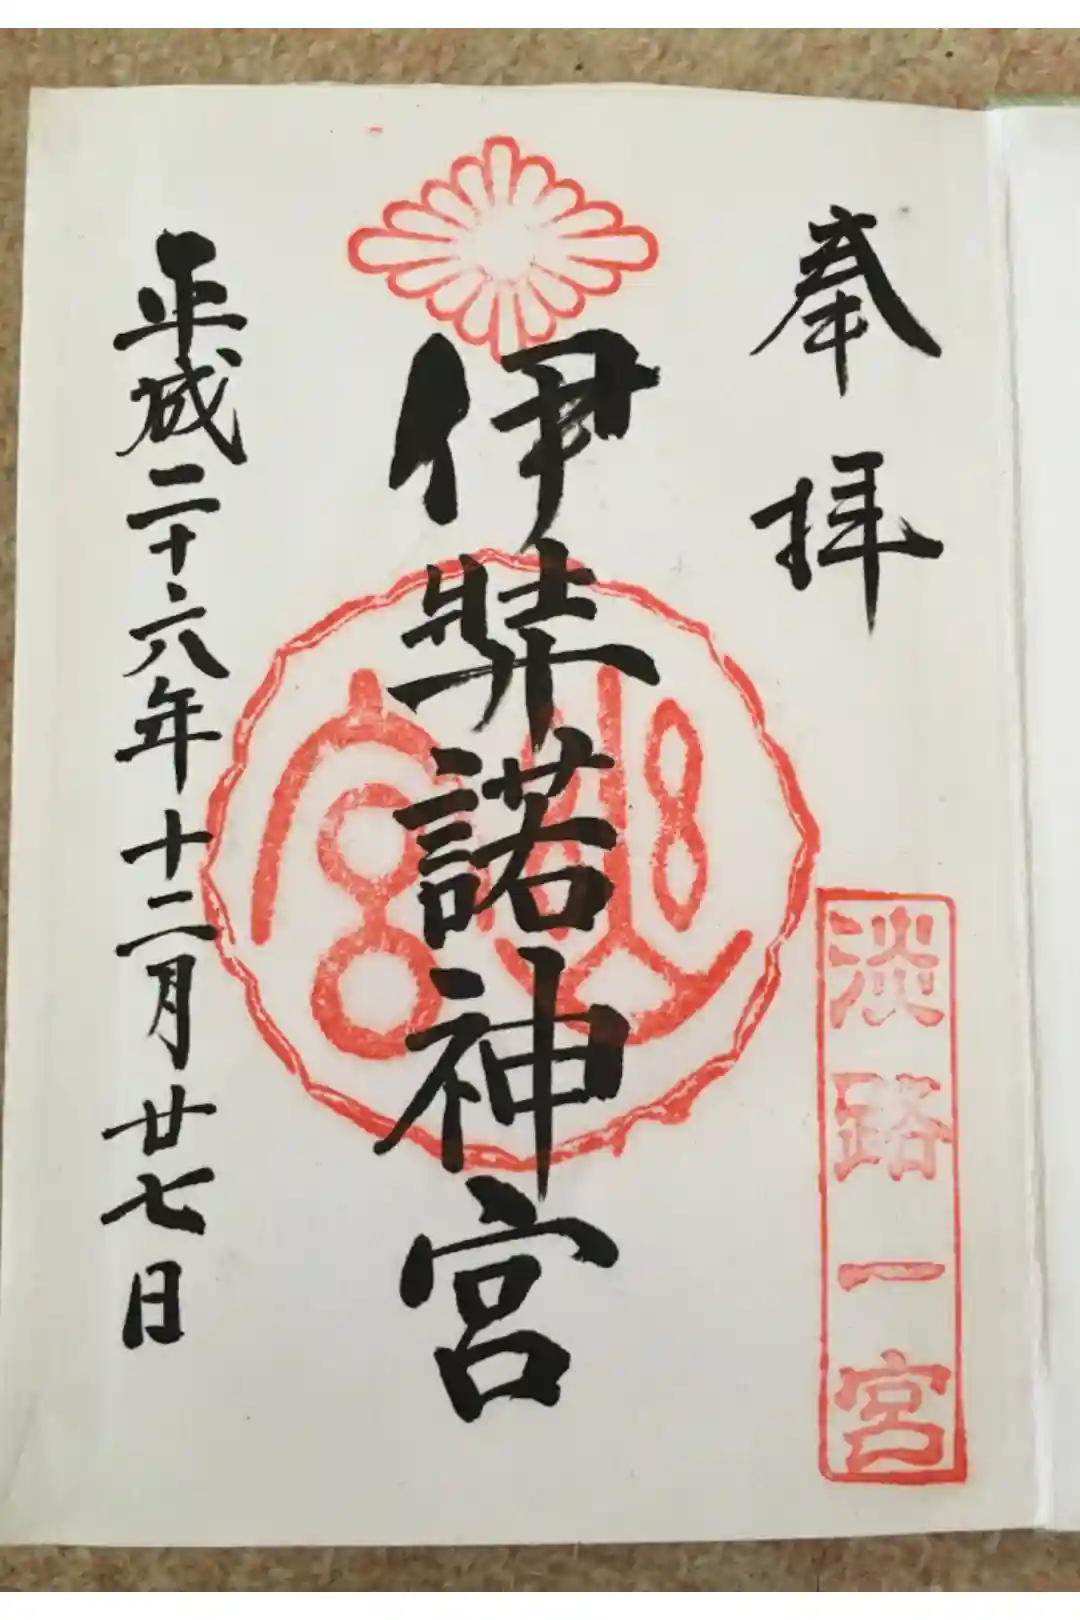 奉拝
淡路一宮
伊弉諾神宮
幽宮
平成二十六年十二月廿七日